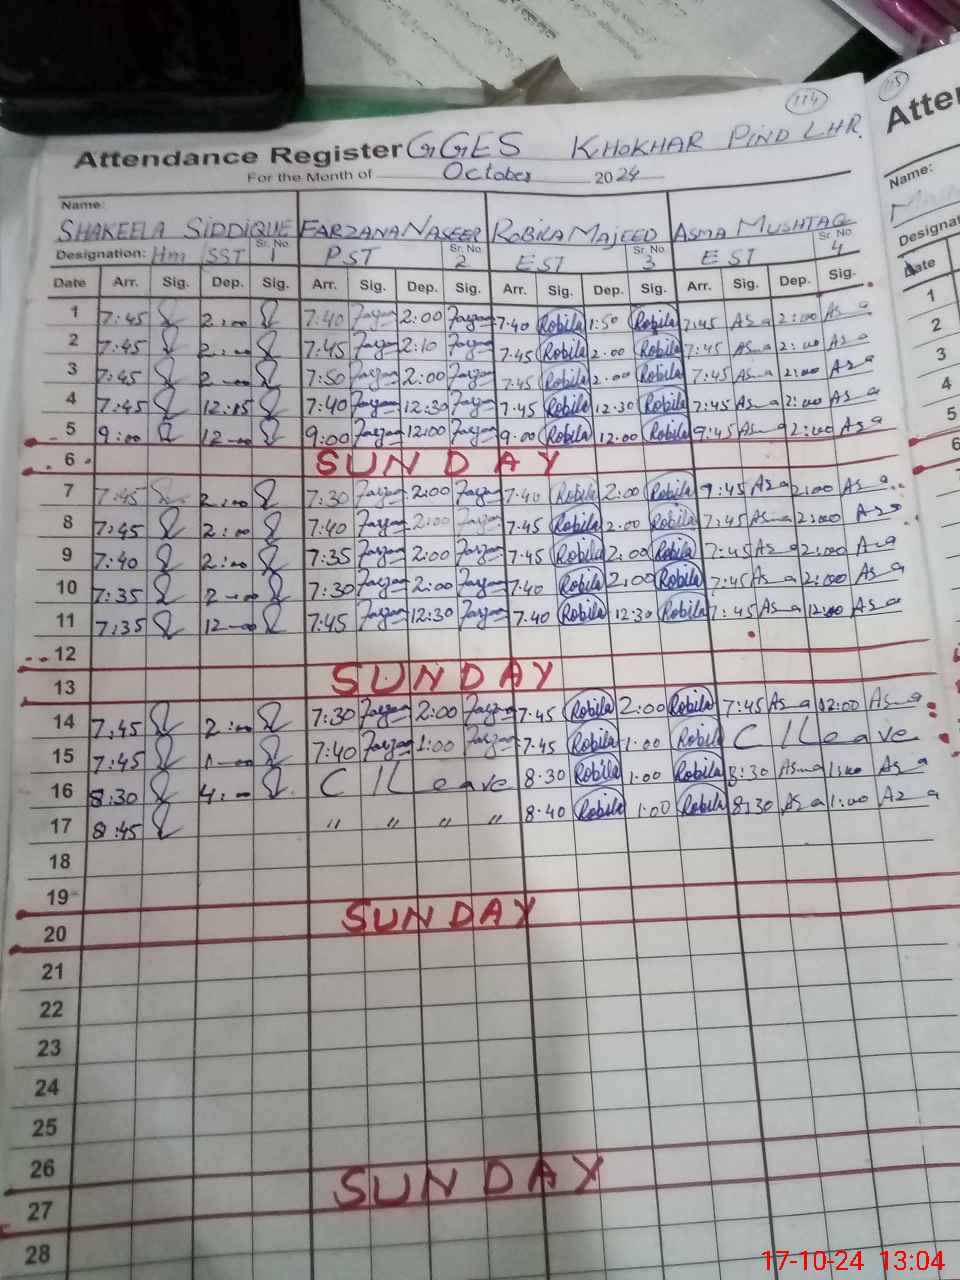 114
115
Attendance Register GGES KHOKHAR PIND LHR.
Atten
For the Month of October 2024
Name:
Name:
SHAKEELA SIDDIQUE FARZANA NASEER ROBILA MAJEED ASMA MUSHTAQ
Designation: Hm SST Sr. No 1 PST Sr. No 2 EST Sr. No 3 EST Sr. No 4
Designat
Date Arr. Sig. Dep. Sig. Arr. Sig. Dep. Sig. Arr. Sig. Dep. Sig. Arr. Sig. Dep. Sig.
Date
1 7:45 2:00 7:40 2:00 7:40 Robila 1:50 Robila 7:45 Asma 2:00 Asma
2 7:45 2:00 7:45 2:10 7:45 Robila 2:00 Robila 7:45 Asma 2:00 Asma
3 7:45 2:00 7:50 2:00 7:45 Robila 2:00 Robila 7:45 Asma 2:00 Asma
4 7:45 12:15 7:40 12:30 7:45 Robila 12:30 Robila 7:45 Asma 2:00 Asma
5 9:00 12:00 9:00 12:00 9:00 Robila 12:00 Robila 9:45 Asma 2:00 Asma
6 SUNDAY
7 7:45 2:00 7:30 2:00 7:40 Robila 2:00 Robila 9:45 Asma 2:00 Asma
8 7:45 2:00 7:40 2:00 7:45 Robila 2:00 Robila 7:45 Asma 2:00 Asma
9 7:40 2:00 7:35 2:00 7:45 Robila 2:00 Robila 7:45 Asma 2:00 Asma
10 7:35 2:00 7:30 2:00 7:40 Robila 2:00 Robila 7:45 Asma 2:00 Asma
11 7:35 12:00 7:45 12:30 7:40 Robila 12:30 Robila 7:45 Asma 12:00 Asma
12
13 SUNDAY
14 7:45 2:00 7:30 2:00 7:45 Robila 2:00 Robila 7:45 Asma 12:00 Asma
15 7:45 1:00 7:40 1:00 7:45 Robila 1:00 Robila C/Leave
16 8:30 4:00 C/Leave 8:30 Robila 1:00 Robila 8:30 Asma 1:00 Asma
17 8:45 " " " " 8:40 Robila 1:00 Robila 8:30 Asma 1:00 Asma
18
19
20 SUNDAY
21
22
23
24
25
26
27 SUNDAY
28
1
2
3
4
5
6
17-10-24 13:04